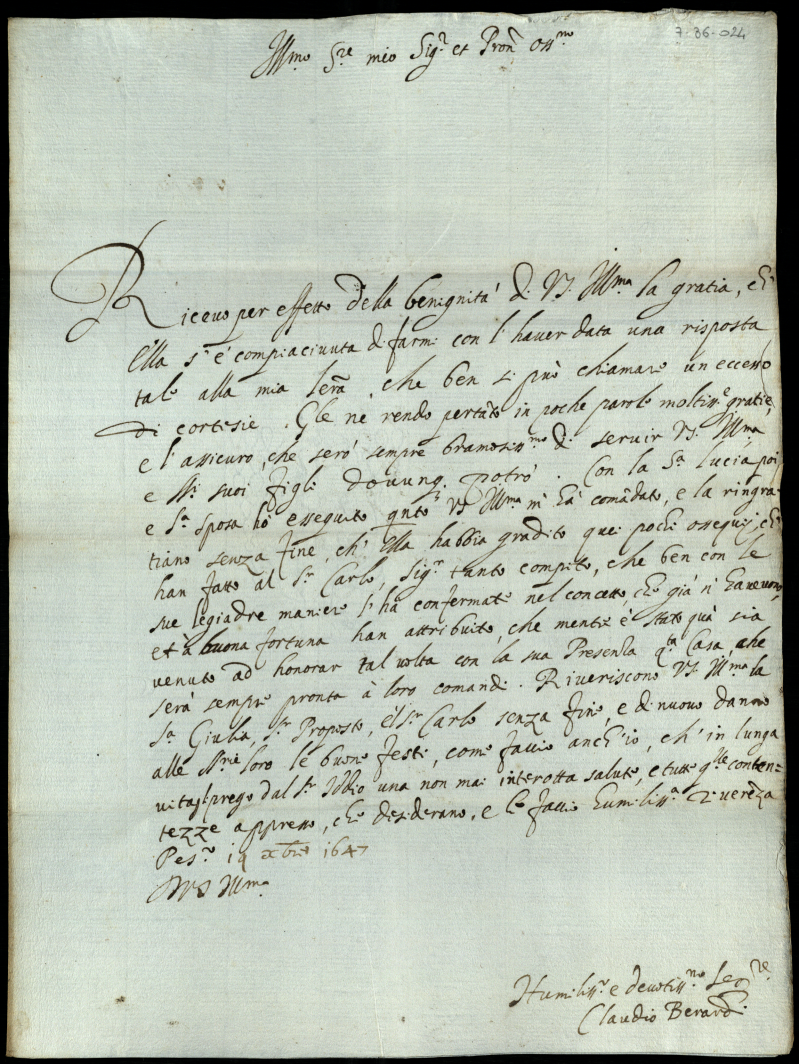 7-36-024
Ill.mo S.re mio Sig.r et Pron. Oss.mo
Ricevo per effetto della benignità di V.S. Ill.ma la gratia, ch'
Ella s'è compiaciuuta di farmi con l'haver data una risposta
tale alla mia lerã, che ben si può chiamare un eccesso
di cortesie. Gle ne rendo pertãto in poche parole moltiss.e gratie,
e l'assicuro, che serò sempre bramosiss.mo di servir V.S. Ill.ma
e SS.ri suoi figli dovunq. potrò. Con la S.ra Lucia poi
e S.ra sposa hò esseguito qnto V.S. Ill.ma m'hà comãdato, e la ringra
tiano senza fine, ch'Ella habbia gradito quei pochi ossequij, ch'
han fatto al S.r Carlo, Sig.r tanto compito, che ben con le
sue legiadre maniere s'ha confermato nel concetto, che già n'haveuono,
et à buona fortuna han attribuito, che mentre è stato quà sia
venuto ad honorar tal volta con la sua Presenza q.ta Casa, che
serà sempre pronta à loro comandi. Riveriscono V.S. Ill.ma la
S.ra Giulia, S.r Proposto, e'l S.r Carlo senza fine, e di nuovo danno
alle SS.rie loro le buone feste, come faccio anch'io, ch'in lunga
vita prego dal S.r Iddio una non mai interotta salute, e tutte q.lle conten=
tezze appresso, che desiderano, e le faccio humiliss.a riverẽza
Pes.o 19 xbre 1647
D V.S. Ill.ma
Humiliss.o e devotiss.mo Se.re
Claudio Berardi